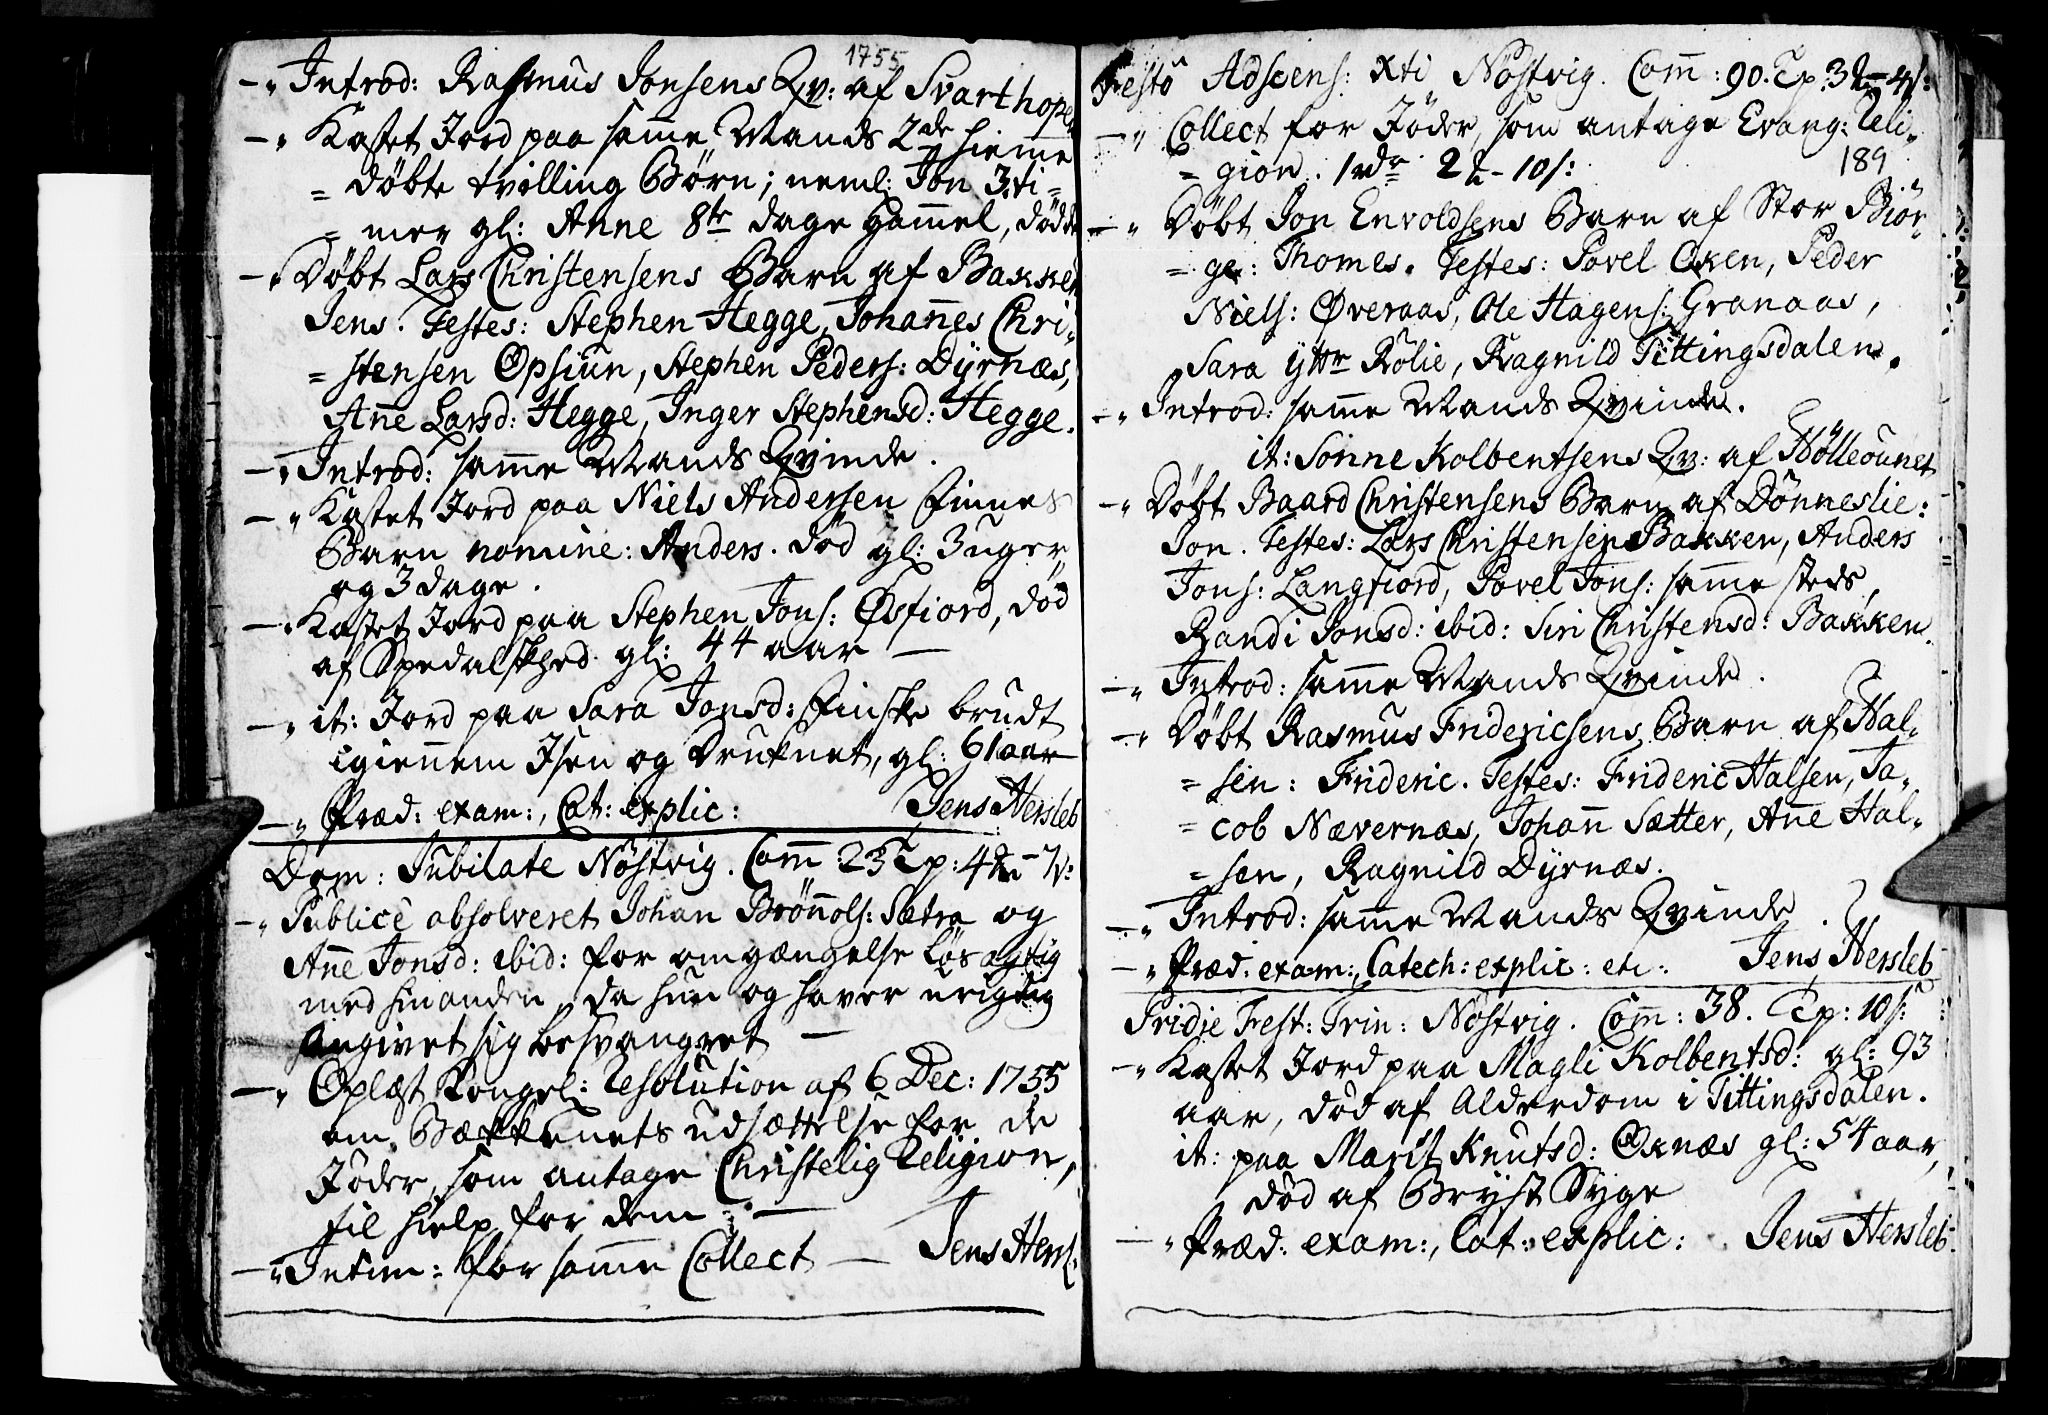 1755
-" Introd: Rasmus Jonsens Qv: af Svarthopen
-" Kastet Jord paa samme Mands 2de hieme
= døbte tvilling Børn; neml: Jon 3 ti=
= mer gl: Anne 8te dage gammel, døde
-" Døbt Lars Christensens Barn af Bakken
Jens. Testes: Stephen Hegge, Johannes Chri-
= stensen Opsiun, Stephen Peders: Dyrnæs,
Anne Larsd: Hegge, Inger Stephensd: Hegge.
-" Introd: samme Mands Qvinde.
-" Kastet Jord paa Niels Andersen Finnes
Barn nomine: Anders. død gl: 3 uger
og 3 dage.
-" Kastet Jord paa Stephen Jons: Øsfiord, død
af Spedalskhed. gl: 44 aar -
-" it: Jord paa Sara Jonsd: Finske brudt
igiennem Isen og Druknet, gl: 61 aar
-" Præd: exam:, Cat: explic: Jens Hersleb
Dom: Jubilate Nøstvig. Comm: 23 Tp: 4
-" Publicè absolveret Johan Brönnols: Sætra og
Anne Jonsd: ibid: for omgængelse løsagtig
med hinanden, da hun og haver urigtig
Angivet sig besvangret -
-" Oplæst Kongel: Resolution af 6 Dec: 1755
om Bækkenets udsættelse for de
Jøder, som antage Christelig Religion,
til hielp for dem -
-" Intim: for samme Collect - Jens Hersl:
Festo Adscens: Xti Nøstvig. Comm: 90. Tp: 3
-" Collect for Jøder, som antage Evang: Reli-
= gion. 1 rdr 2 - 10 s:
189
-" Døbt Jon Envoldsens Barn af Stor Biør-
= ge: Thomes. Testes: Povel Oxen, Peder
Niels: Øveraas, Ole Hagens: Granaas,
Sara ytter Rølie, Ragnild Tittingsdalen.
-" Introd: samme Mands Qvinde.
it: Sønne Kolbentsens Qv: af Hølleøunet
-" Døbt Baard Christensens Barn af Dønneslie:
Jon. Testes: Lars Christensen Bakken, Anders
Jons: Langfiord, Povel Jons: samme steds,
Randi Jonsd: ibid: Siri Christensd: Bakken.
-" Introd: samme Mands Qvinde.
-" Døbt Rasmus Fridericsens Barn af Hal-
= sen: Frideric. Testes: Frideric Halsen, Ja-
= cob Nævernæs, Johan Sætter, Anne Hal-
= sen, Ragnild Dyrnæs.
-" Introd: samme Mands Qvinde.
-" Præd: exam:, Catech: explic: etc: Jens Hersleb
Pridje Fest: Trin: Nøstvig. Comm: 38. Tp: 10 s:
-" Kastet Jord paa Magli Kolbentsd: gl: 93
aar, død af Alderdom i Tittingsdalen.
it: paa Marit Knutsd: Oxnæs gl: 54 aar,
død af Bryst Syge
-" Præd: exam:, Cat: explic: Jens Hersleb.